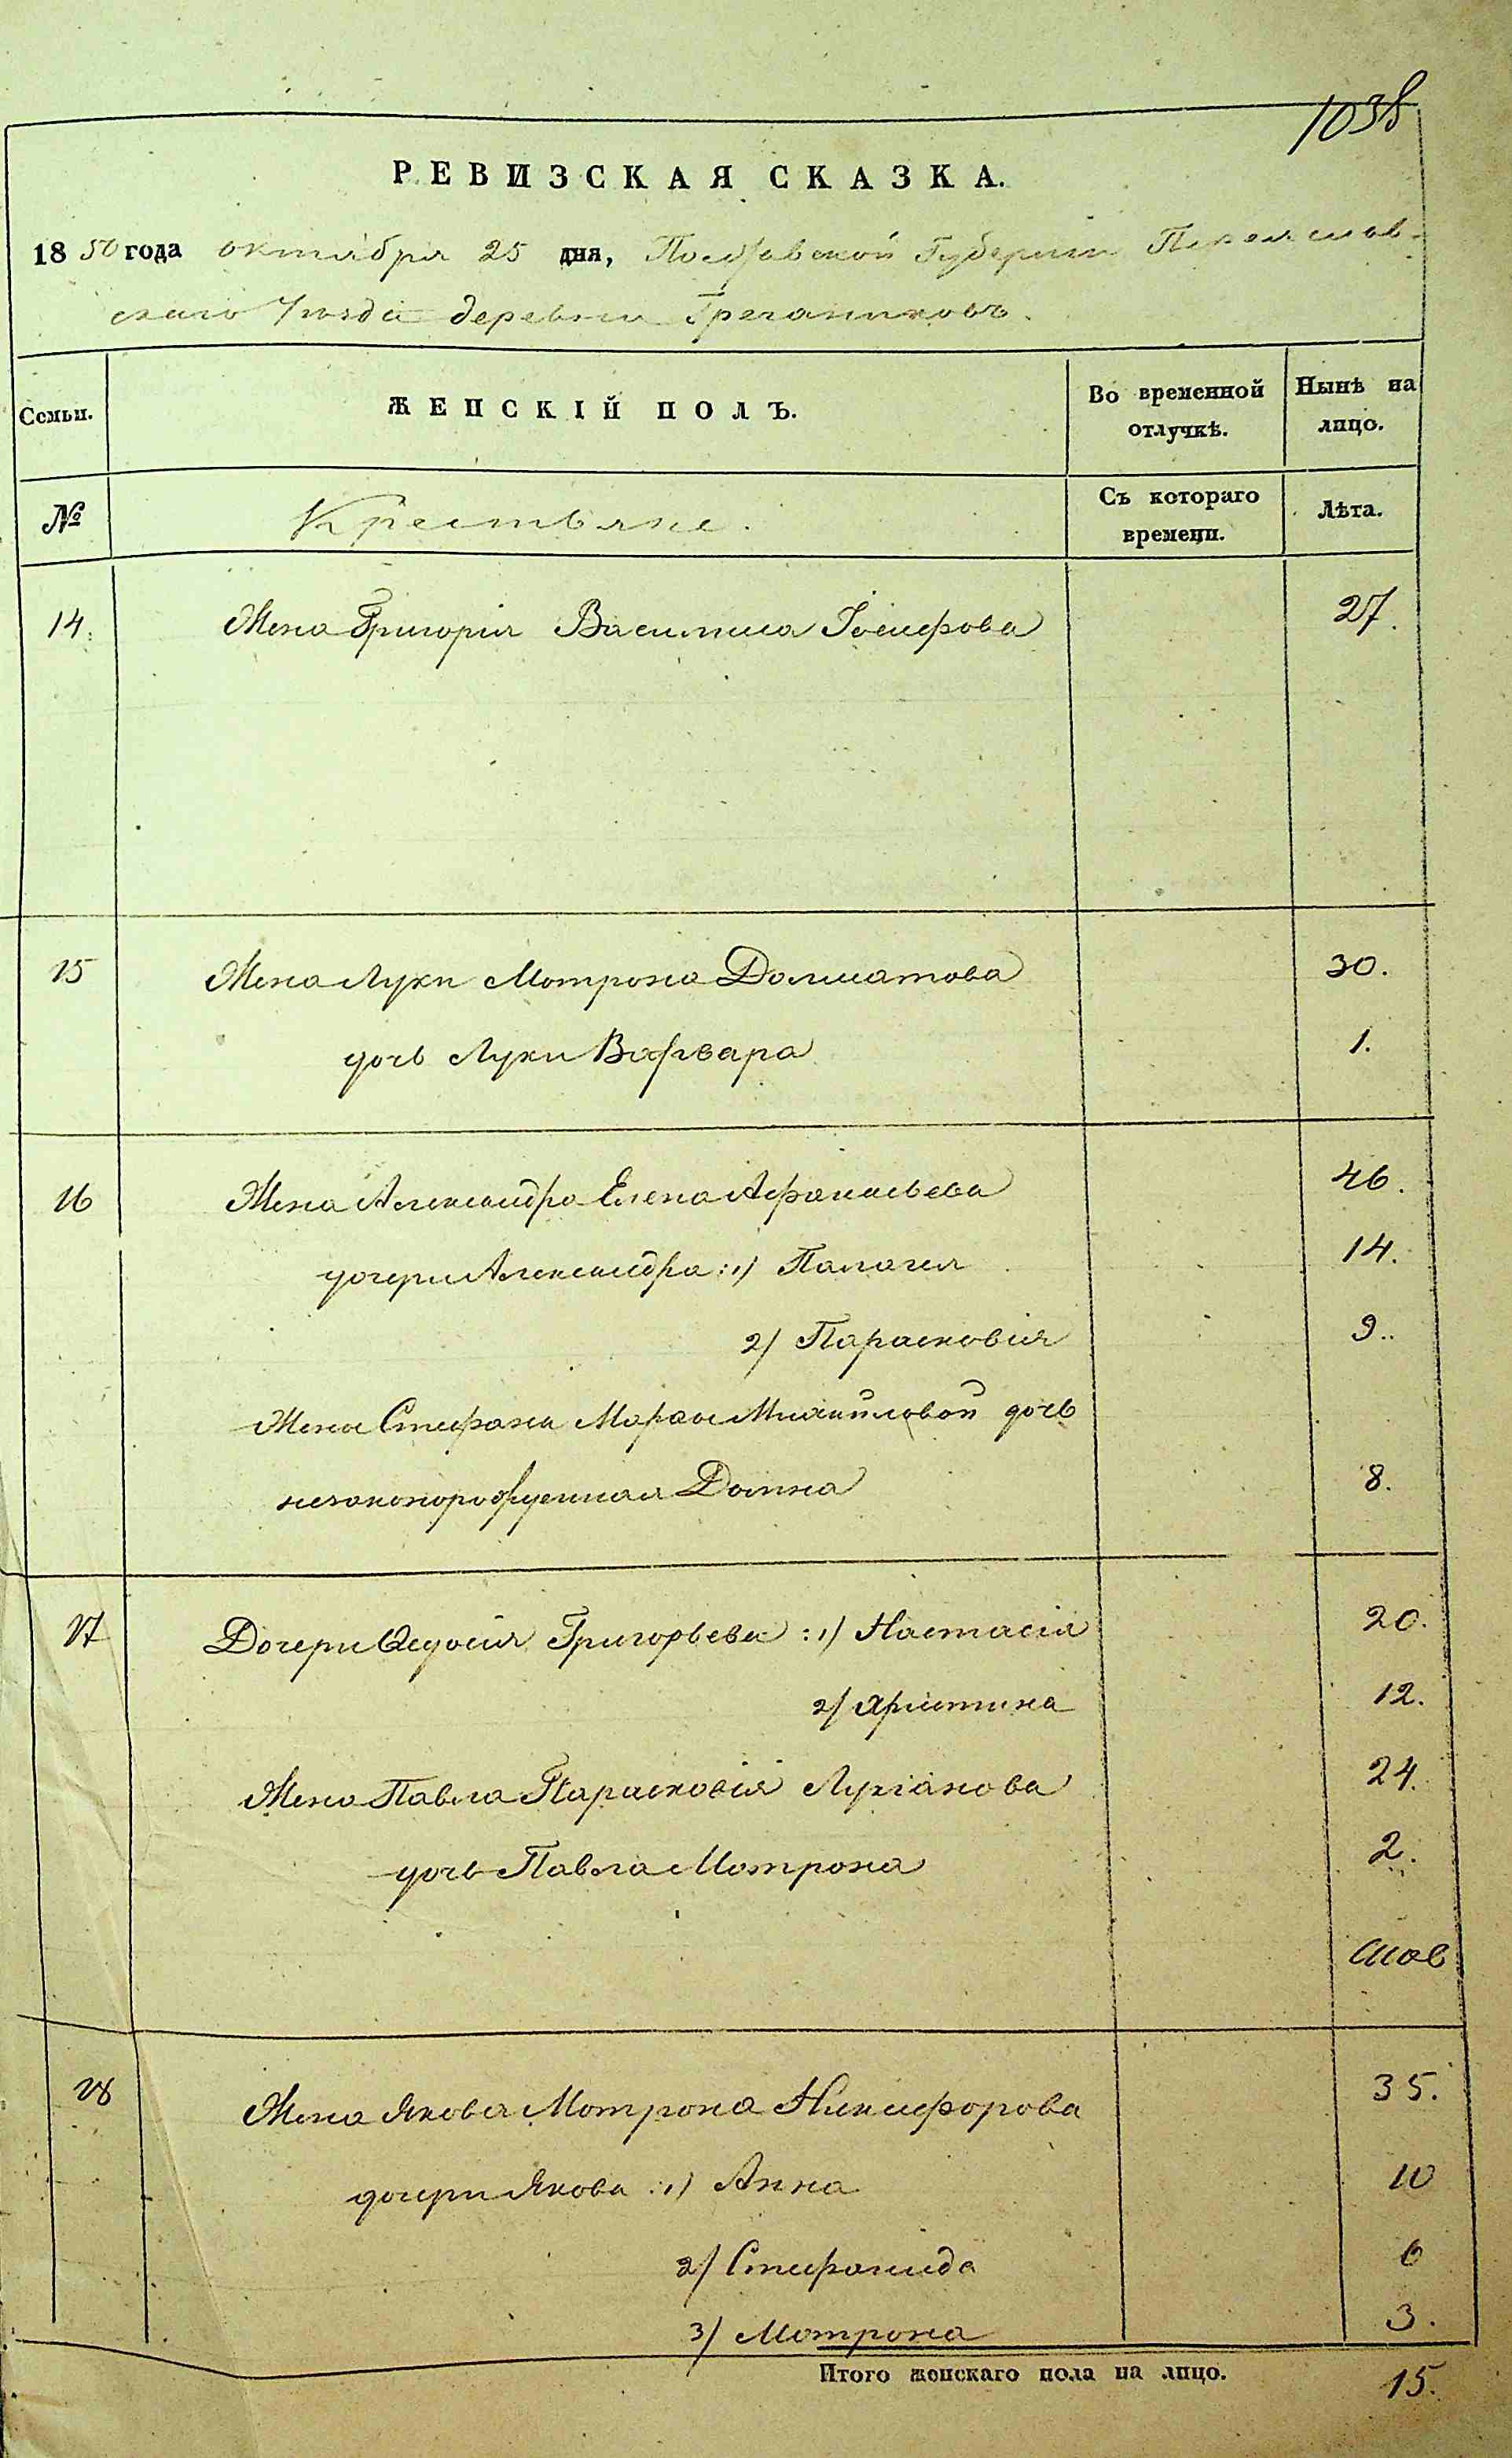 1038
РЕВИЗСКАЯ СКАЗКА.
1850 года октября 25 дня, Полтавской Губернии Переяслав-
скаго Уѣзда деревни Гречаниковъ.
Семьи. ЖЕНСКІЙ ПОЛЪ. Во временной отлучкѣ. Нынѣ на лицо.
№ Крестьяне. Съ котораго времени. Лѣта.
14. Жена Григорія Василиса Іосифова 27.
15 Жена Луки Мотрона Долматова 30.
дочь Луки Варвара 1.
16 Жена Александра Елена Афанасьева 46.
дочери Александра: 1) Палагея 14.
2) Парасковія 9..
Жены Стефана Марфы Михайловой дочь
незаконорожденная Домна 8.
17 Дочери Ѳедосія Григорьева: 1) Настасія 20.
2) Христина 12.
Жена Павла Парасковія Лукіанова 24.
дочь Павла Мотрона 2.
18 Жена Якова Мотрона Никифорова 35.
дочери Якова: 1) Анна 10
2) Стефанида 6
3) Мотрона 3.
Итого женскаго пола на лицо. 15.